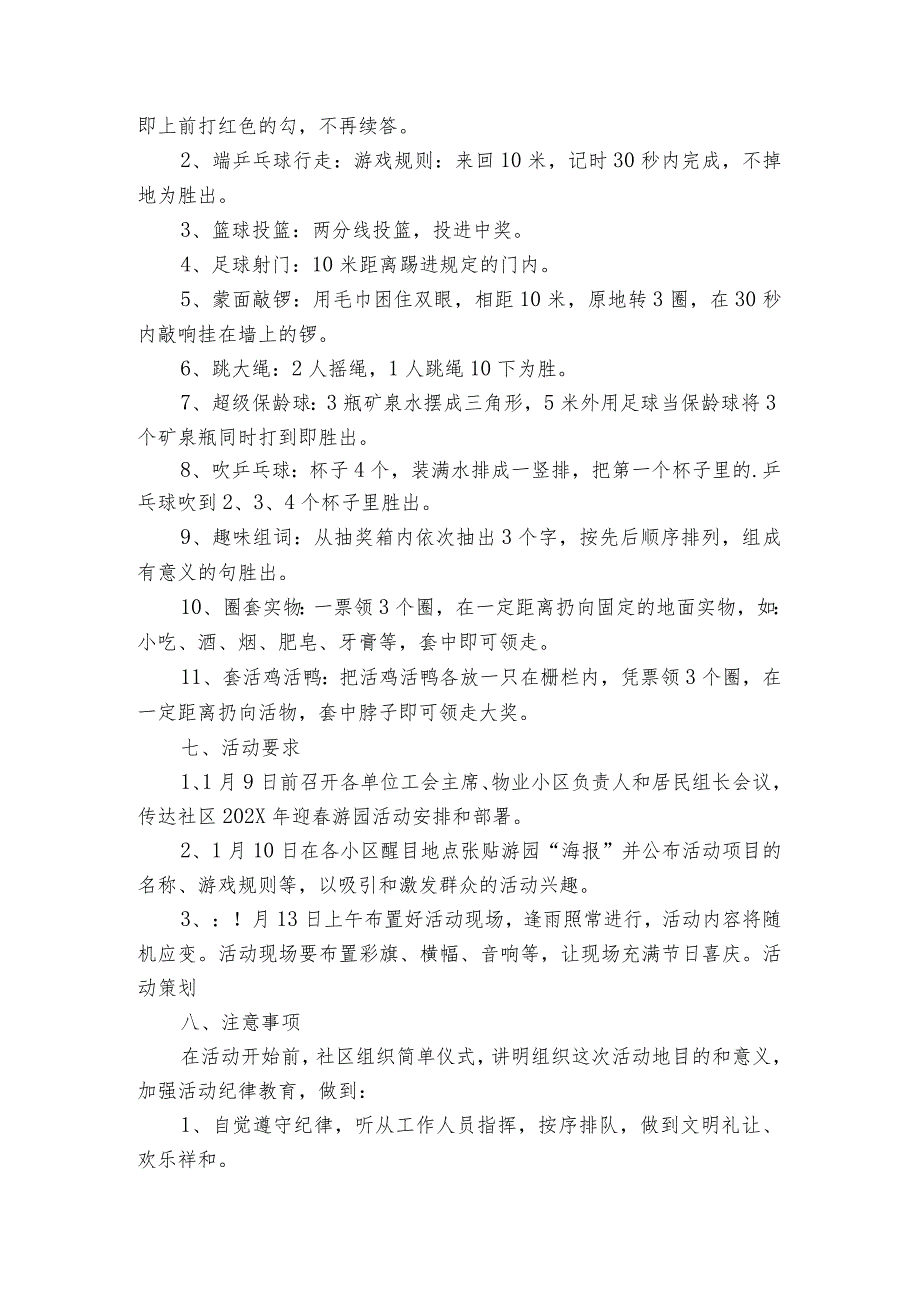 即上前打红色的勾，不再续答。
2、端乒乓球行走：游戏规则：来回 10 米，记时 30 秒内完成，不掉
地为胜出。
3、篮球投篮：两分线投篮，投进中奖。
4、足球射门：10 米距离踢进规定的门内。
5、蒙面敲锣：用毛巾困住双眼，相距 10 米，原地转 3 圈，在 30 秒
内敲响挂在墙上的锣。
6、跳大绳：2 人摇绳，1 人跳绳 10 下为胜。
7、超级保龄球：3 瓶矿泉水摆成三角形，5 米外用足球当保龄球将 3
个矿泉瓶同时打到即胜出。
8、吹乒乓球：杯子 4 个，装满水排成一竖排，把第一个杯子里的.乒
乓球吹到 2、3、4 个杯子里胜出。
9、趣味组词：从抽奖箱内依次抽出 3 个字，按先后顺序排列，组成
有意义的句胜出。
10、圈套实物：一票领 3 个圈，在一定距离扔向固定的地面实物，如：
小吃、酒、烟、肥皂、牙膏等，套中即可领走。
11、套活鸡活鸭：把活鸡活鸭各放一只在栅栏内，凭票领 3 个圈，在
一定距离扔向活物，套中脖子即可领走大奖。
七、活动要求
1、1 月 9 日前召开各单位工会主席、物业小区负责人和居民组长会议，
传达社区 202X 年迎春游园活动安排和部署。
2、1 月 10 日在各小区醒目地点张贴游园“海报”并公布活动项目的
名称、游戏规则等，以吸引和激发群众的活动兴趣。
3、：！月 13 日上午布置好活动现场，逢雨照常进行，活动内容将随
机应变。活动现场要布置彩旗、横幅、音响等，让现场充满节日喜庆。活
动策划
八、注意事项
在活动开始前，社区组织简单仪式，讲明组织这次活动地目的和意义，
加强活动纪律教育，做到：
1、自觉遵守纪律，听从工作人员指挥，按序排队，做到文明礼让、
欢乐祥和。